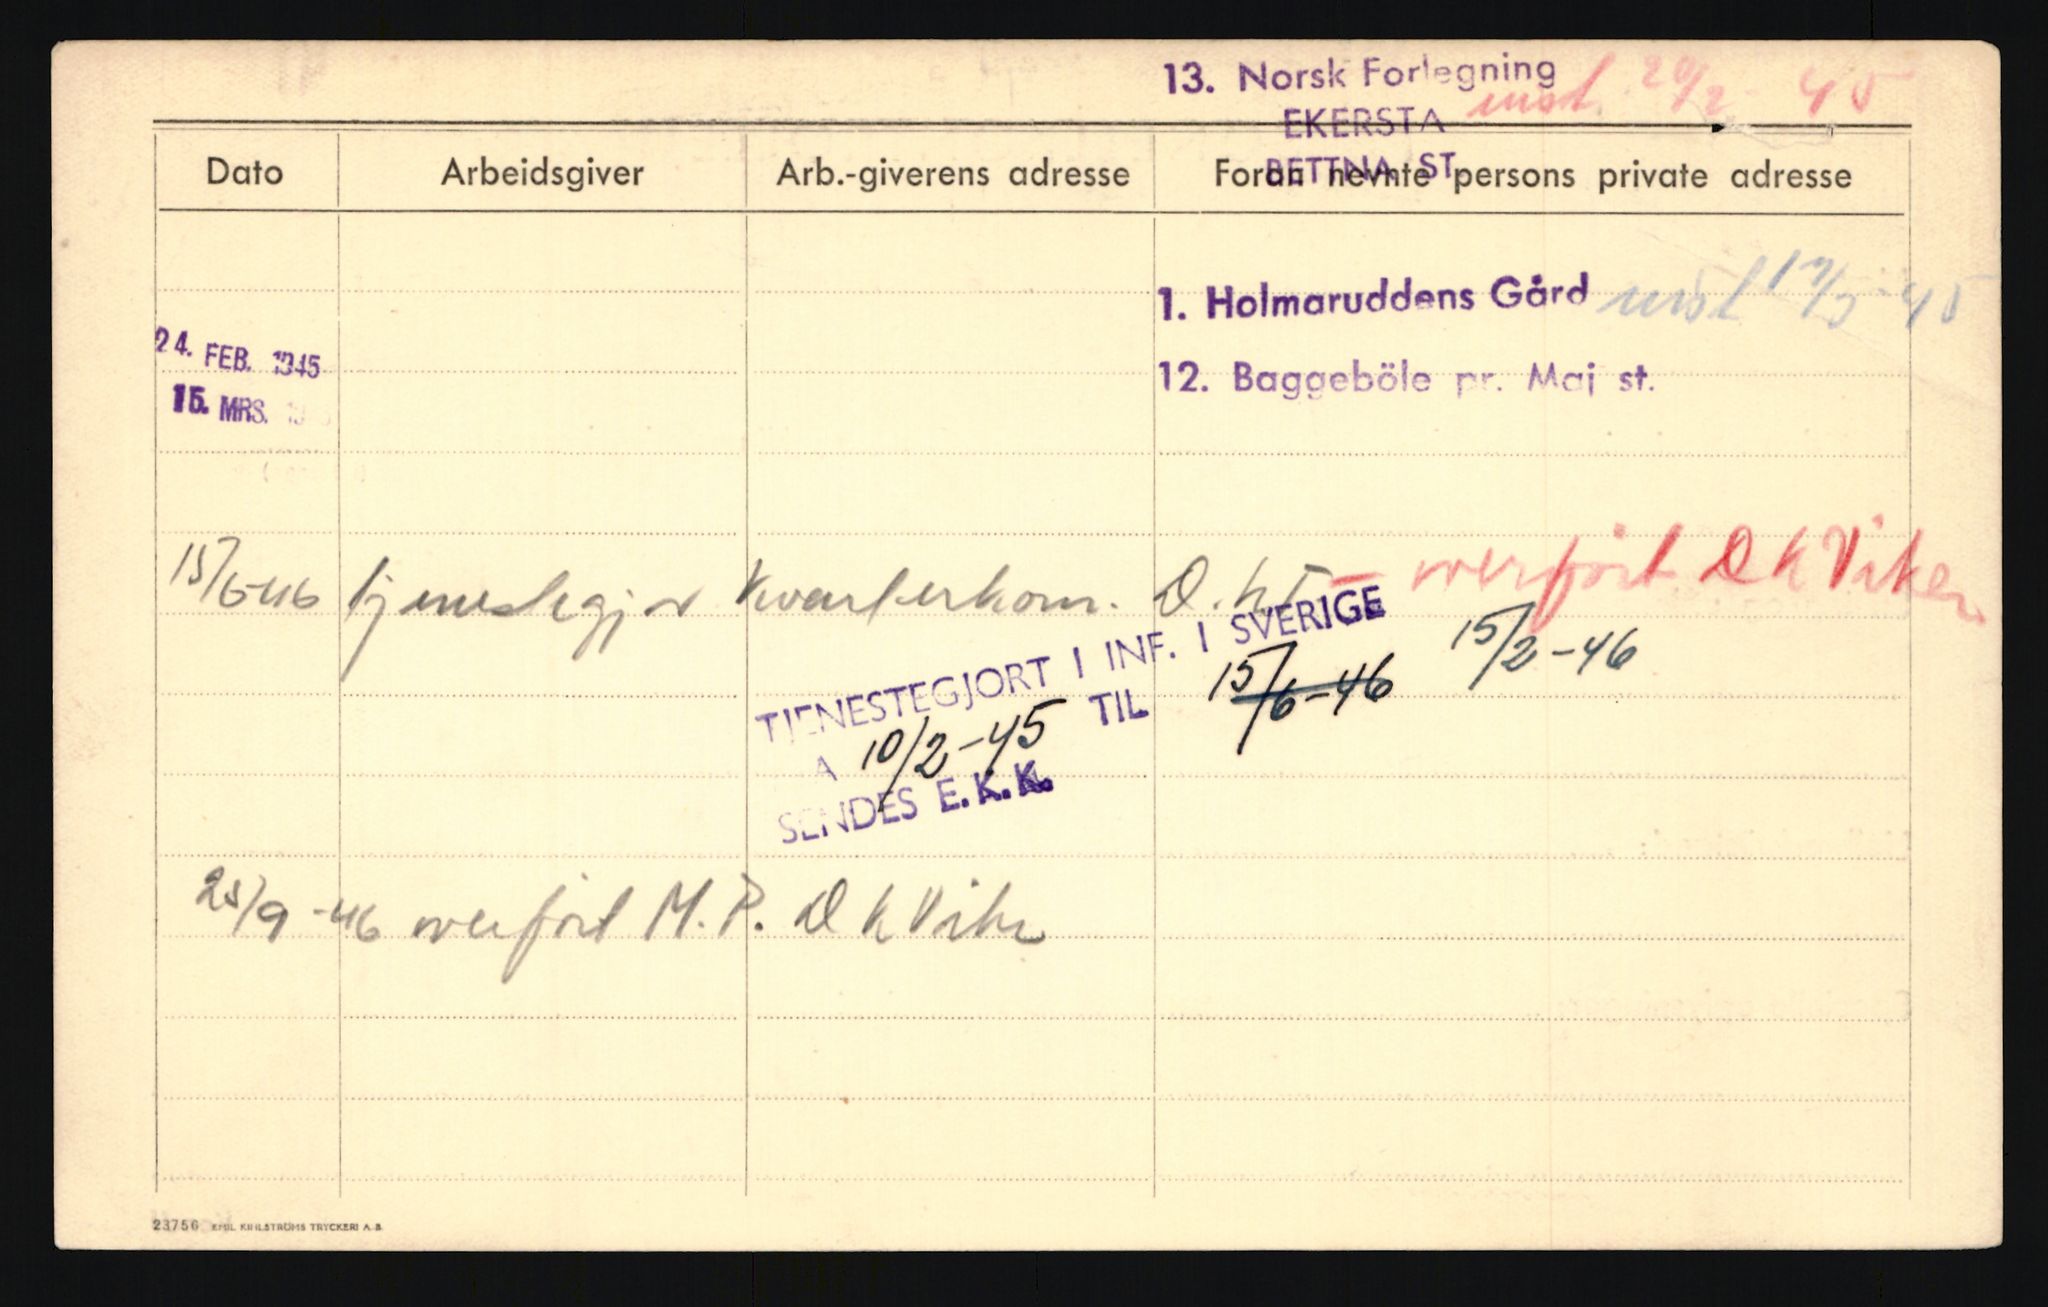 13. Norsk Forlegning
EKERSTA
BETTNA ST.
inst. 20/2 - 45
Dato Arbeidsgiver Arb.-giverens adresse Foran nevnte persons private adresse
1. Holmaruddens Gård
24. FEB. 1945
12. Baggeböle pr. Maj st.
15. MRS.
15/6-46 tjenestegjør Kvarterkom. D.K.I — overført D K Viken
15/2-46
TJENESTEGJORT I INF. I SVERIGE
A 10/2-45 TIL 15/6-46
SENDES E.K.K.
25/9-46 overført M.P. D K Viken
23756 EMIL KIHLSTRÖMS TRYCKERI A.B.